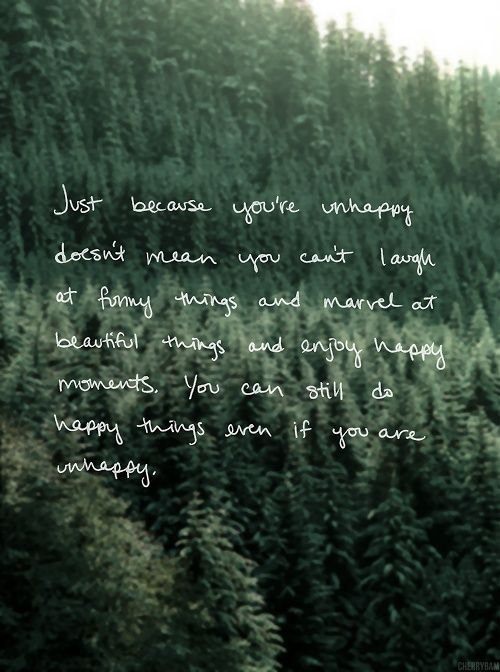 Just because you're unhappy
doesn't mean you can't laugh
at funny things and marvel at
beautiful things and enjoy happy
moments. You can still do
happy things even if you are
unhappy.
CHERRYBAM